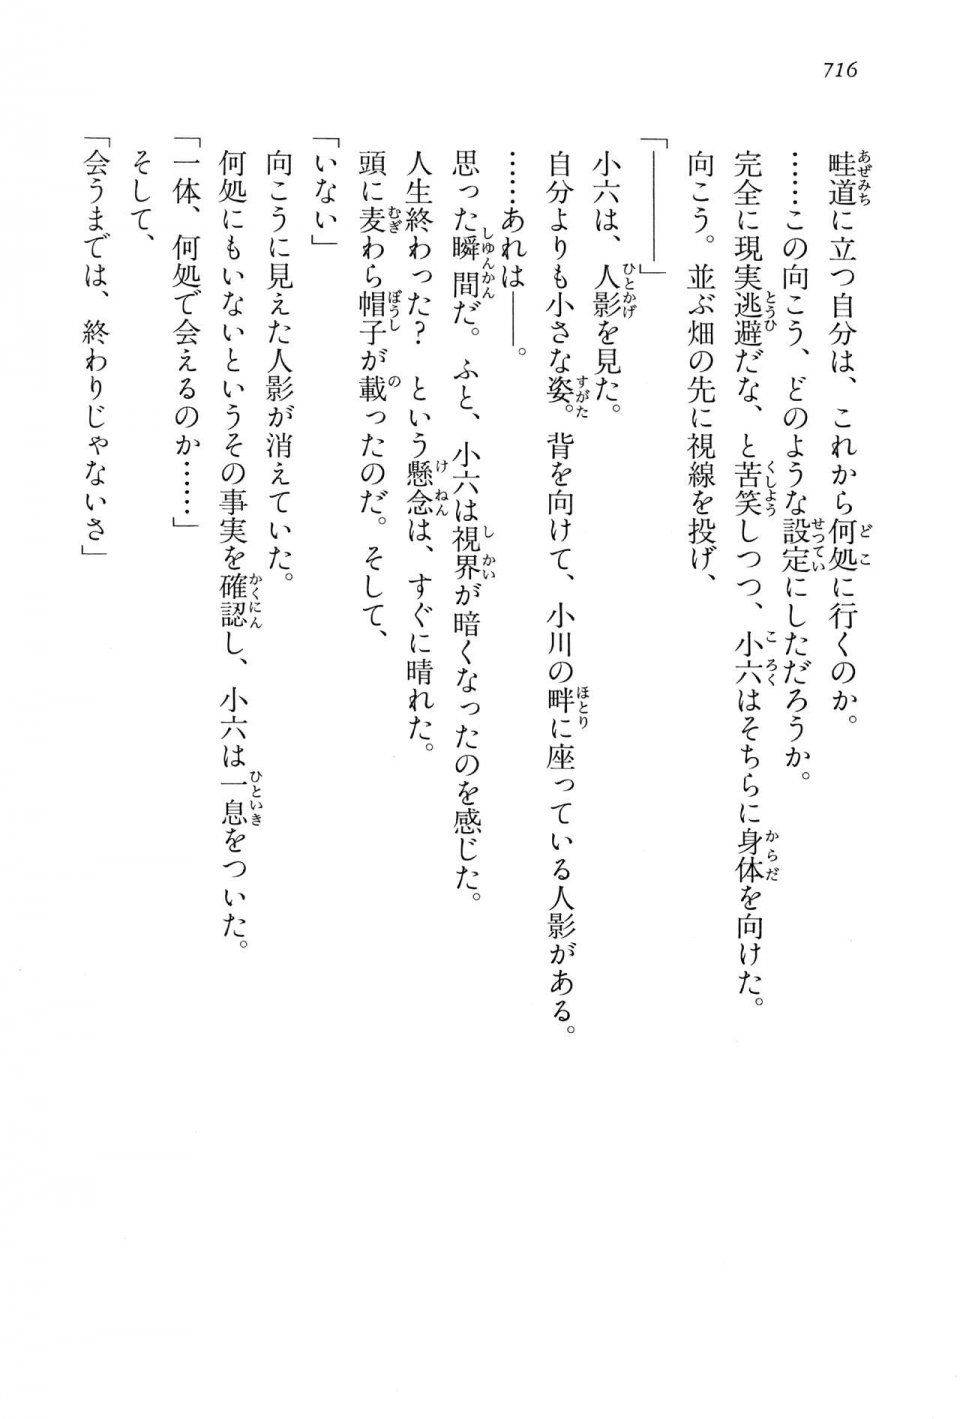 716
畦道に立つ自分は、これから何処に行くのか。
……この向こう、どのような設定にしただろうか。
完全に現実逃避だな、と苦笑しつつ、小六はそちらに身体を向けた。
向こう。並ぶ畑の先に視線を投げ、
「――――」
小六は、人影を見た。
自分よりも小さな姿。背を向けて、小川の畔に座っている人影がある。
……あれは――。
思った瞬間だ。ふと、小六は視界が暗くなったのを感じた。
人生終わった？　という懸念は、すぐに晴れた。
頭に麦わら帽子が載ったのだ。そして、
「いない」
向こうに見えた人影が消えていた。
何処にもいないというその事実を確認し、小六は一息をついた。
「一体、何処で会えるのか……」
そして、
「会うまでは、終わりじゃないさ」